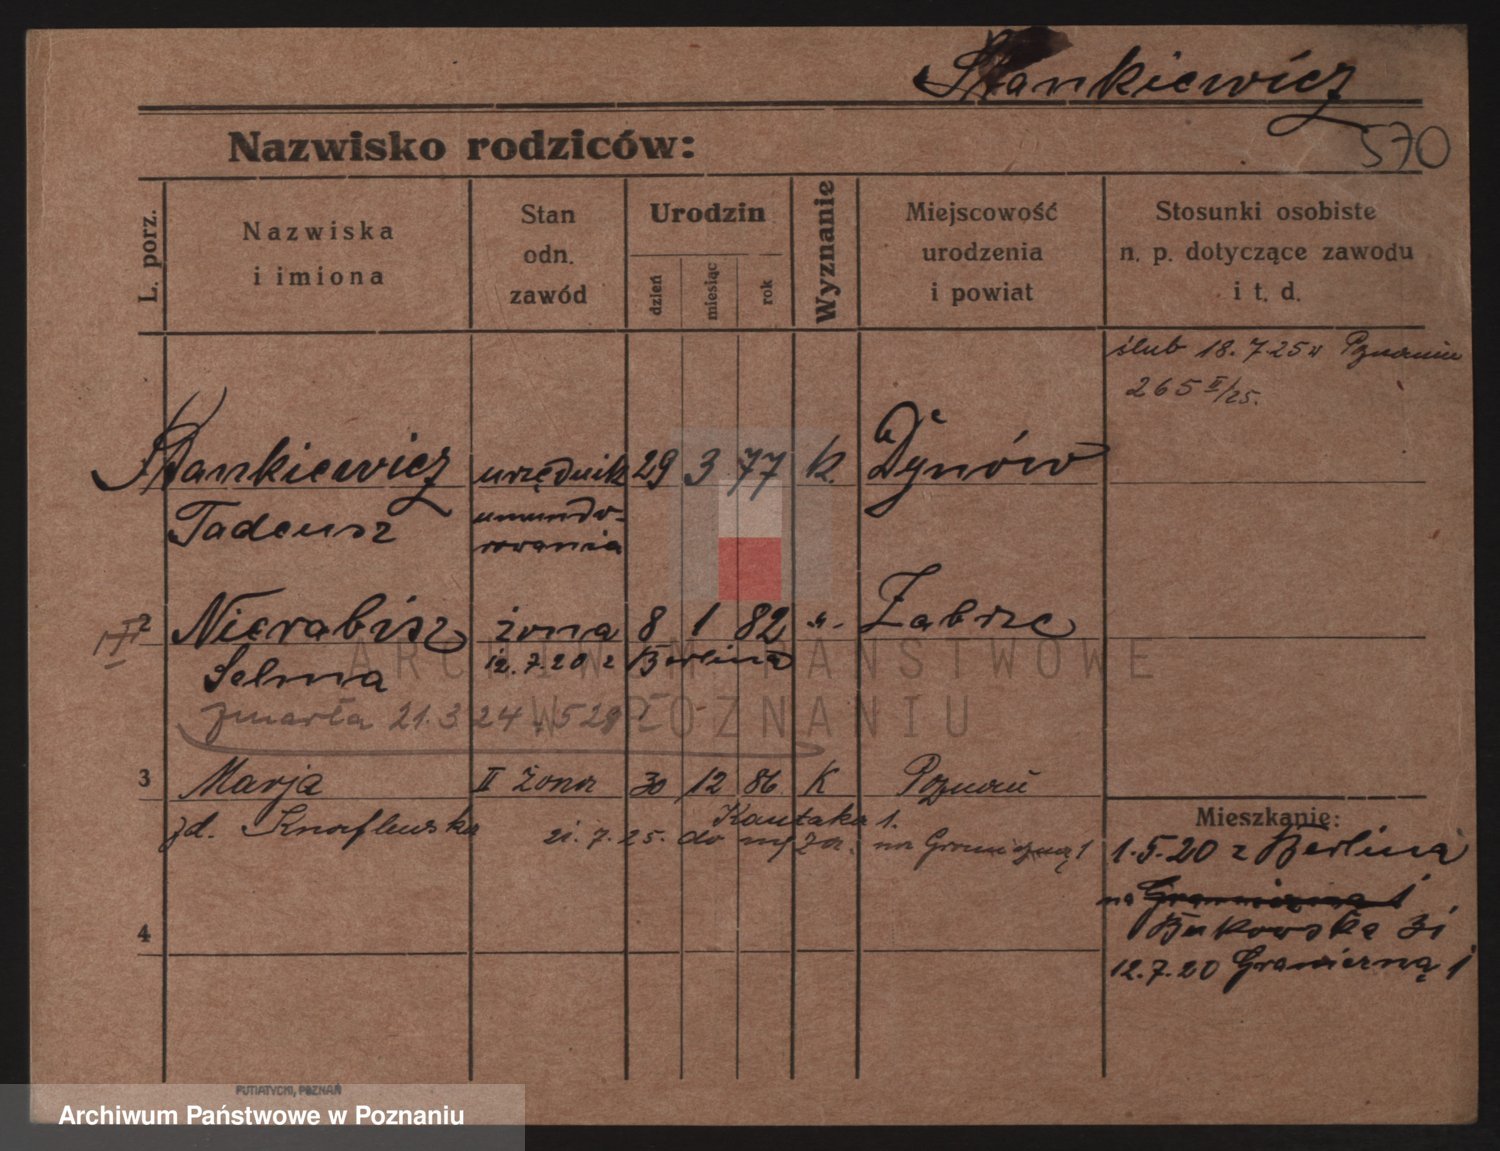 Stankiewicz
570
Nazwisko rodziców:
L. porz.
Nazwiska
i imiona
Stan
odn.
zawód
Urodzin
dzień
miesiąc
rok
Wyznanie
Miejscowość
urodzenia
i powiat
Stosunki osobiste
n. p. dotyczące zawodu
i t. d.
ślub 18.7.25 w Poznaniu
265 II/25.
Stankiewicz urzędnik 29 3 77 K. Dynów
Tadeusz umundo-
rowania
2 Nierabisz żona 8 1 82 „. Zabrze
Selma 12.7.20 z Berlina
zmarła 21.3.24 528
3 Marja II żona 30 12 86 K Poznań
zd. Knaflewska Kantaka 1.
21.7.25. do męża. na Graniczną 1
Mieszkanie:
1.5.20 z Berlina
na Graniczna 1
Bukowska 31
12.7.20 Graniczną 1
4
ARCHIWUM PAŃSTWOWE
W POZNANIU
PUTIATYCKI, POZNAŃ
Archiwum Państwowe w Poznaniu